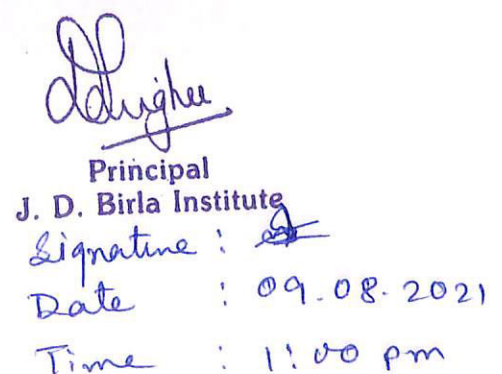 Principal
J. D. Birla Institute
Signature :
Date : 09.08.2021
Time : 1:00 pm